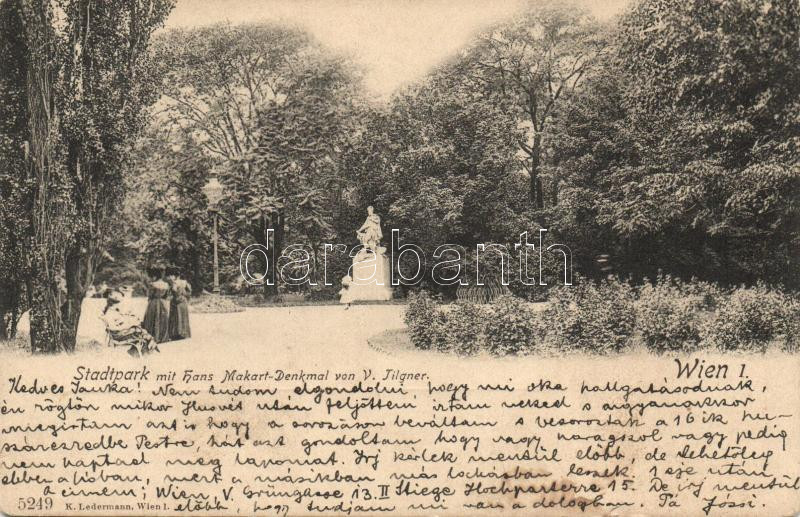 darabanth
Stadtpark mit Hans Makart-Denkmal von V. Tilgner.
Wien I.
Kedves Janka! Nem tudom elgondolni, hogy mi oka hallgatásodnak,
én rögtön mikor Husvét után feljöttem irtam neked s ugyanakkor
megirtam azt is hogy a sorozáson beváltam s besoroztak a 16 ik hu-
szárezredbe Pestre, hát azt gondoltam hogy vagy haragszol vagy pedig
nem kaptad meg lapomat. Irj kérlek mentül előbb, de lehetőleg
ebben a hóban, mert a másikban más lakásban leszek 1 eje után
a cimem; Wien, V. Grüngasse 13. II Stiege Hochparterre 15. De irj mentül
előbb, hogy tudjam mi van a dologban. Pá Józsi.
5249 K. Ledermann, Wien I.